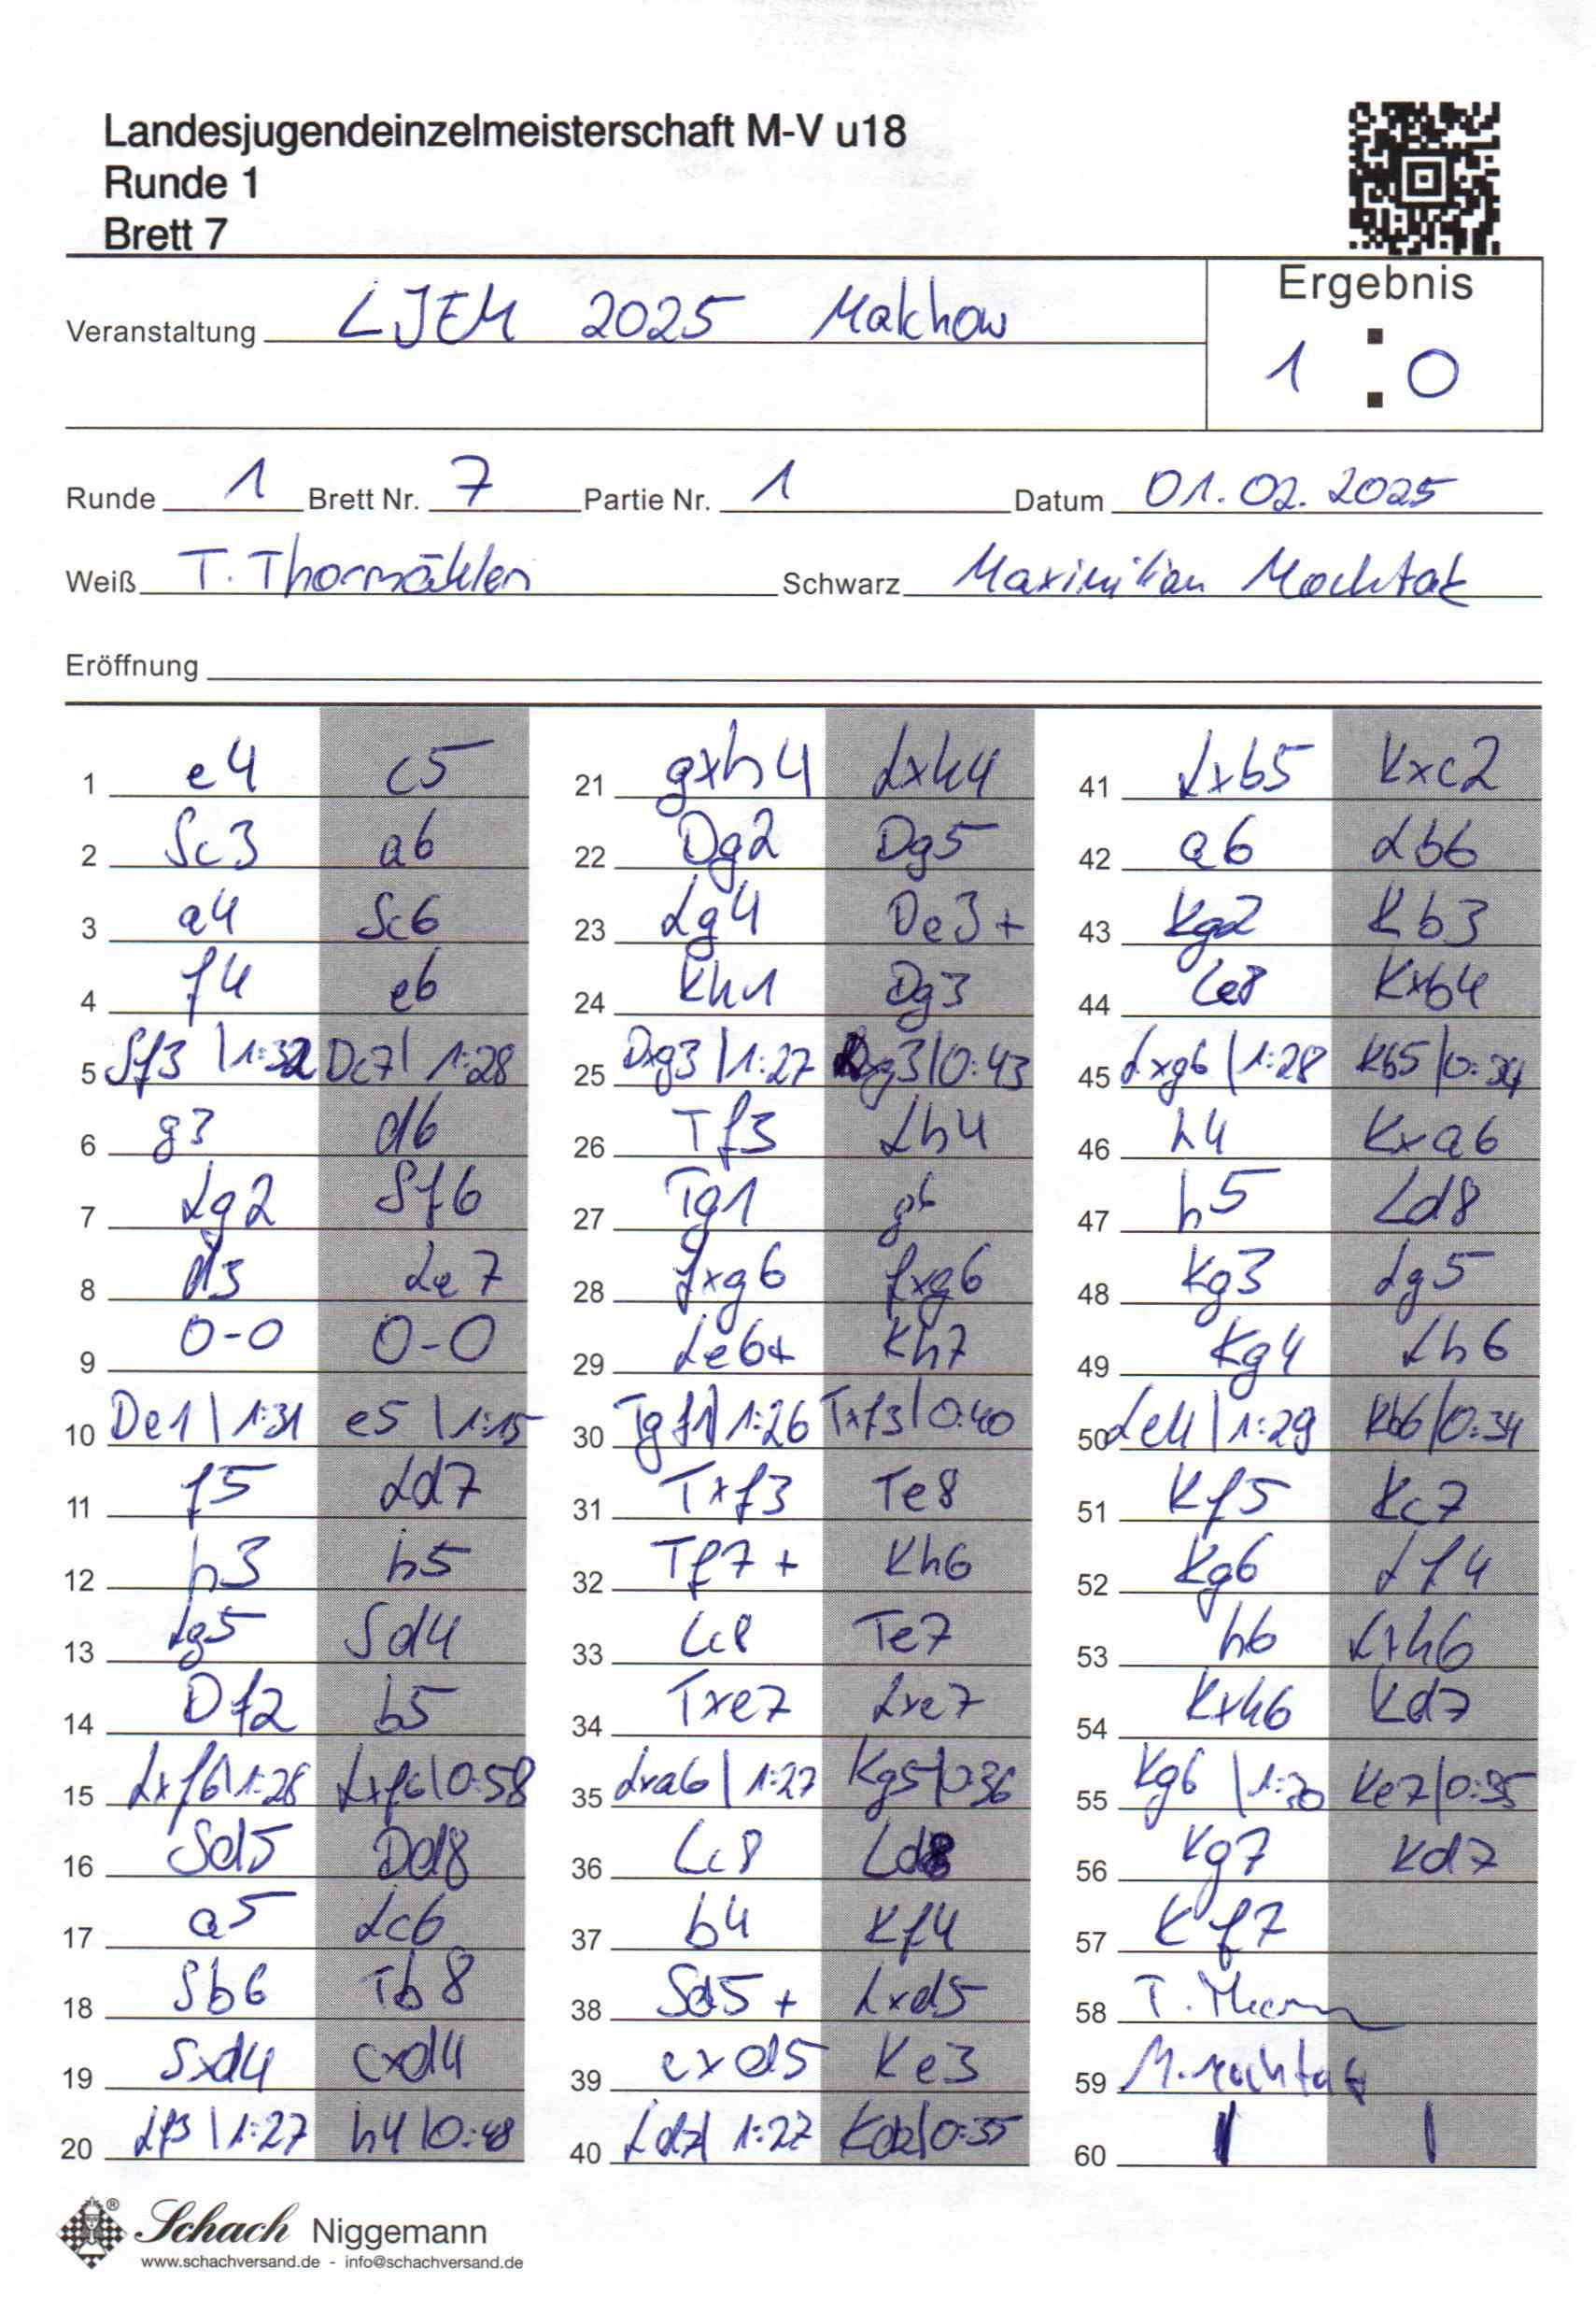 Landesjugendeinzelmeisterschaft M-V u18
Runde 1
Brett 7
Ergebnis
Veranstaltung LJEM 2025 Malchow
1 : 0
Runde 1 Brett Nr. 7 Partie Nr. 1 Datum 01.02.2025
Weiß T. Thormählen Schwarz Maximilian Mochtak
Eröffnung
1 e4 c5
2 Sc3 a6
3 a4 Sc6
4 f4 e6
5 Sf3 | 1:32 Dc7 | 1:28
6 g3 d6
7 Lg2 Sf6
8 d3 Le7
9 0-0 0-0
10 De1 | 1:31 e5 | 1:15
11 f5 Ld7
12 h3 h5
13 Lg5 Sd4
14 Df2 b5
15 Lxf6 | 1:28 Lxf6 | 0:58
16 Sd5 Dd8
17 a5 Lc6
18 Sb6 Tb8
19 Sxd4 cxd4
20 Lf3 | 1:27 h4 | 0:48
21 gxh4 Lxh4
22 Dg2 Dg5
23 Lg4 De3+
24 Kh1 Dg3
25 Dxg3 | 1:27 Lxg3 | 0:43
26 Tf3 Lh4
27 Tg1 g6
28 fxg6 fxg6
29 Le6+ Kh7
30 Tgf1 | 1:26 Txf3 | 0:40
31 Txf3 Te8
32 Tf7+ Kh6
33 Lc8 Te7
34 Txe7 Lxe7
35 Lxa6 | 1:27 Kg5 | 0:36
36 Lc8 Ld8
37 b4 Kf4
38 Sd5+ Lxd5
39 exd5 Ke3
40 Ld7 | 1:27 Kd2 | 0:35
41 Lxb5 Kxc2
42 a6 Lb6
43 Kg2 Kb3
44 Le8 Kxb4
45 Lxg6 | 1:28 Kb5 | 0:34
46 h4 Kxa6
47 h5 Ld8
48 Kg3 Lg5
49 Kg4 Lh6
50 Le4 | 1:29 Kb6 | 0:34
51 Kf5 Kc7
52 Kg6 Lf4
53 h6 Lxh6
54 Kxh6 Kd7
55 Kg6 | 1:30 Ke7 | 0:35
56 Kg7 Kd7
57 Kf7
58 T. Thorm
59 M. Mochtak
60
Schach Niggemann
www.schachversand.de - info@schachversand.de